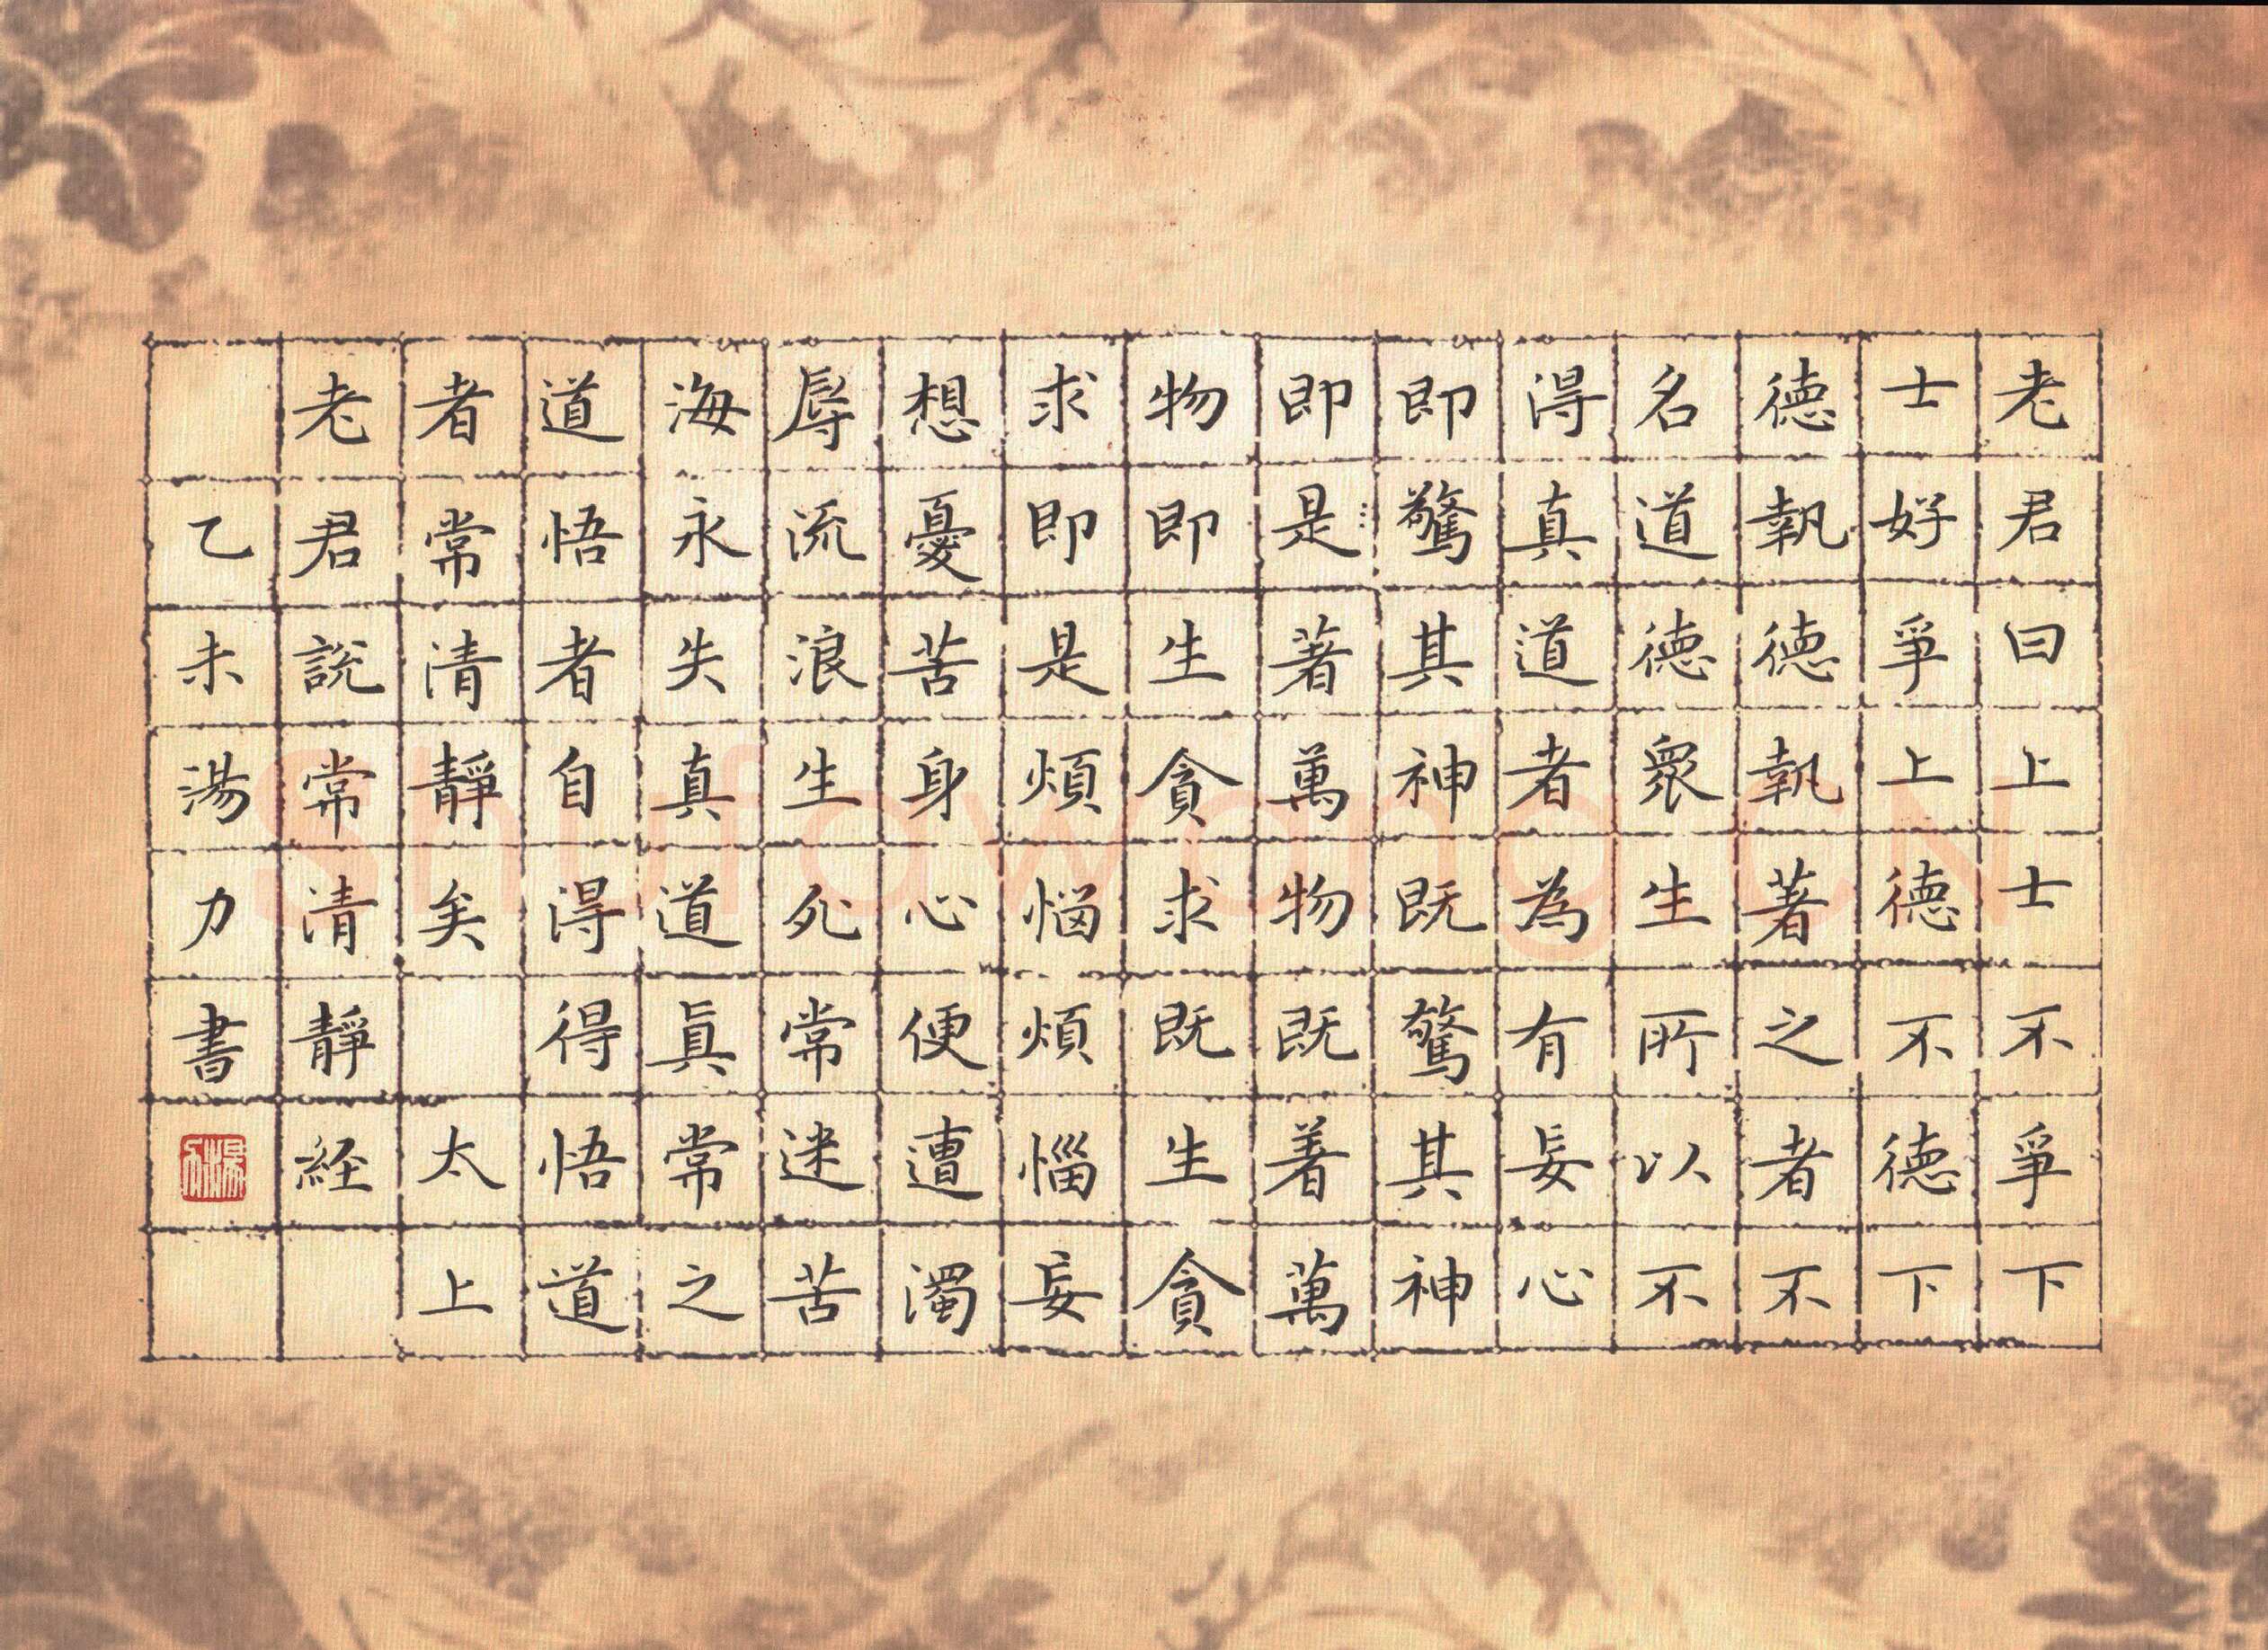 老君曰上士不爭下
士好爭上德不德下
德執德執著之者不
名道德眾生所以不
得真道者為有妄心
即驚其神既驚其神
即是著萬物既着萬
物即生貪求既生貪
求即是煩惱煩惱妄
想憂苦身心便遭濁
辱流浪生死常迷苦
海永失真道眞常之
道悟者自得得悟道
者常清靜矣 太上
老君說常清靜経
乙未湯力書